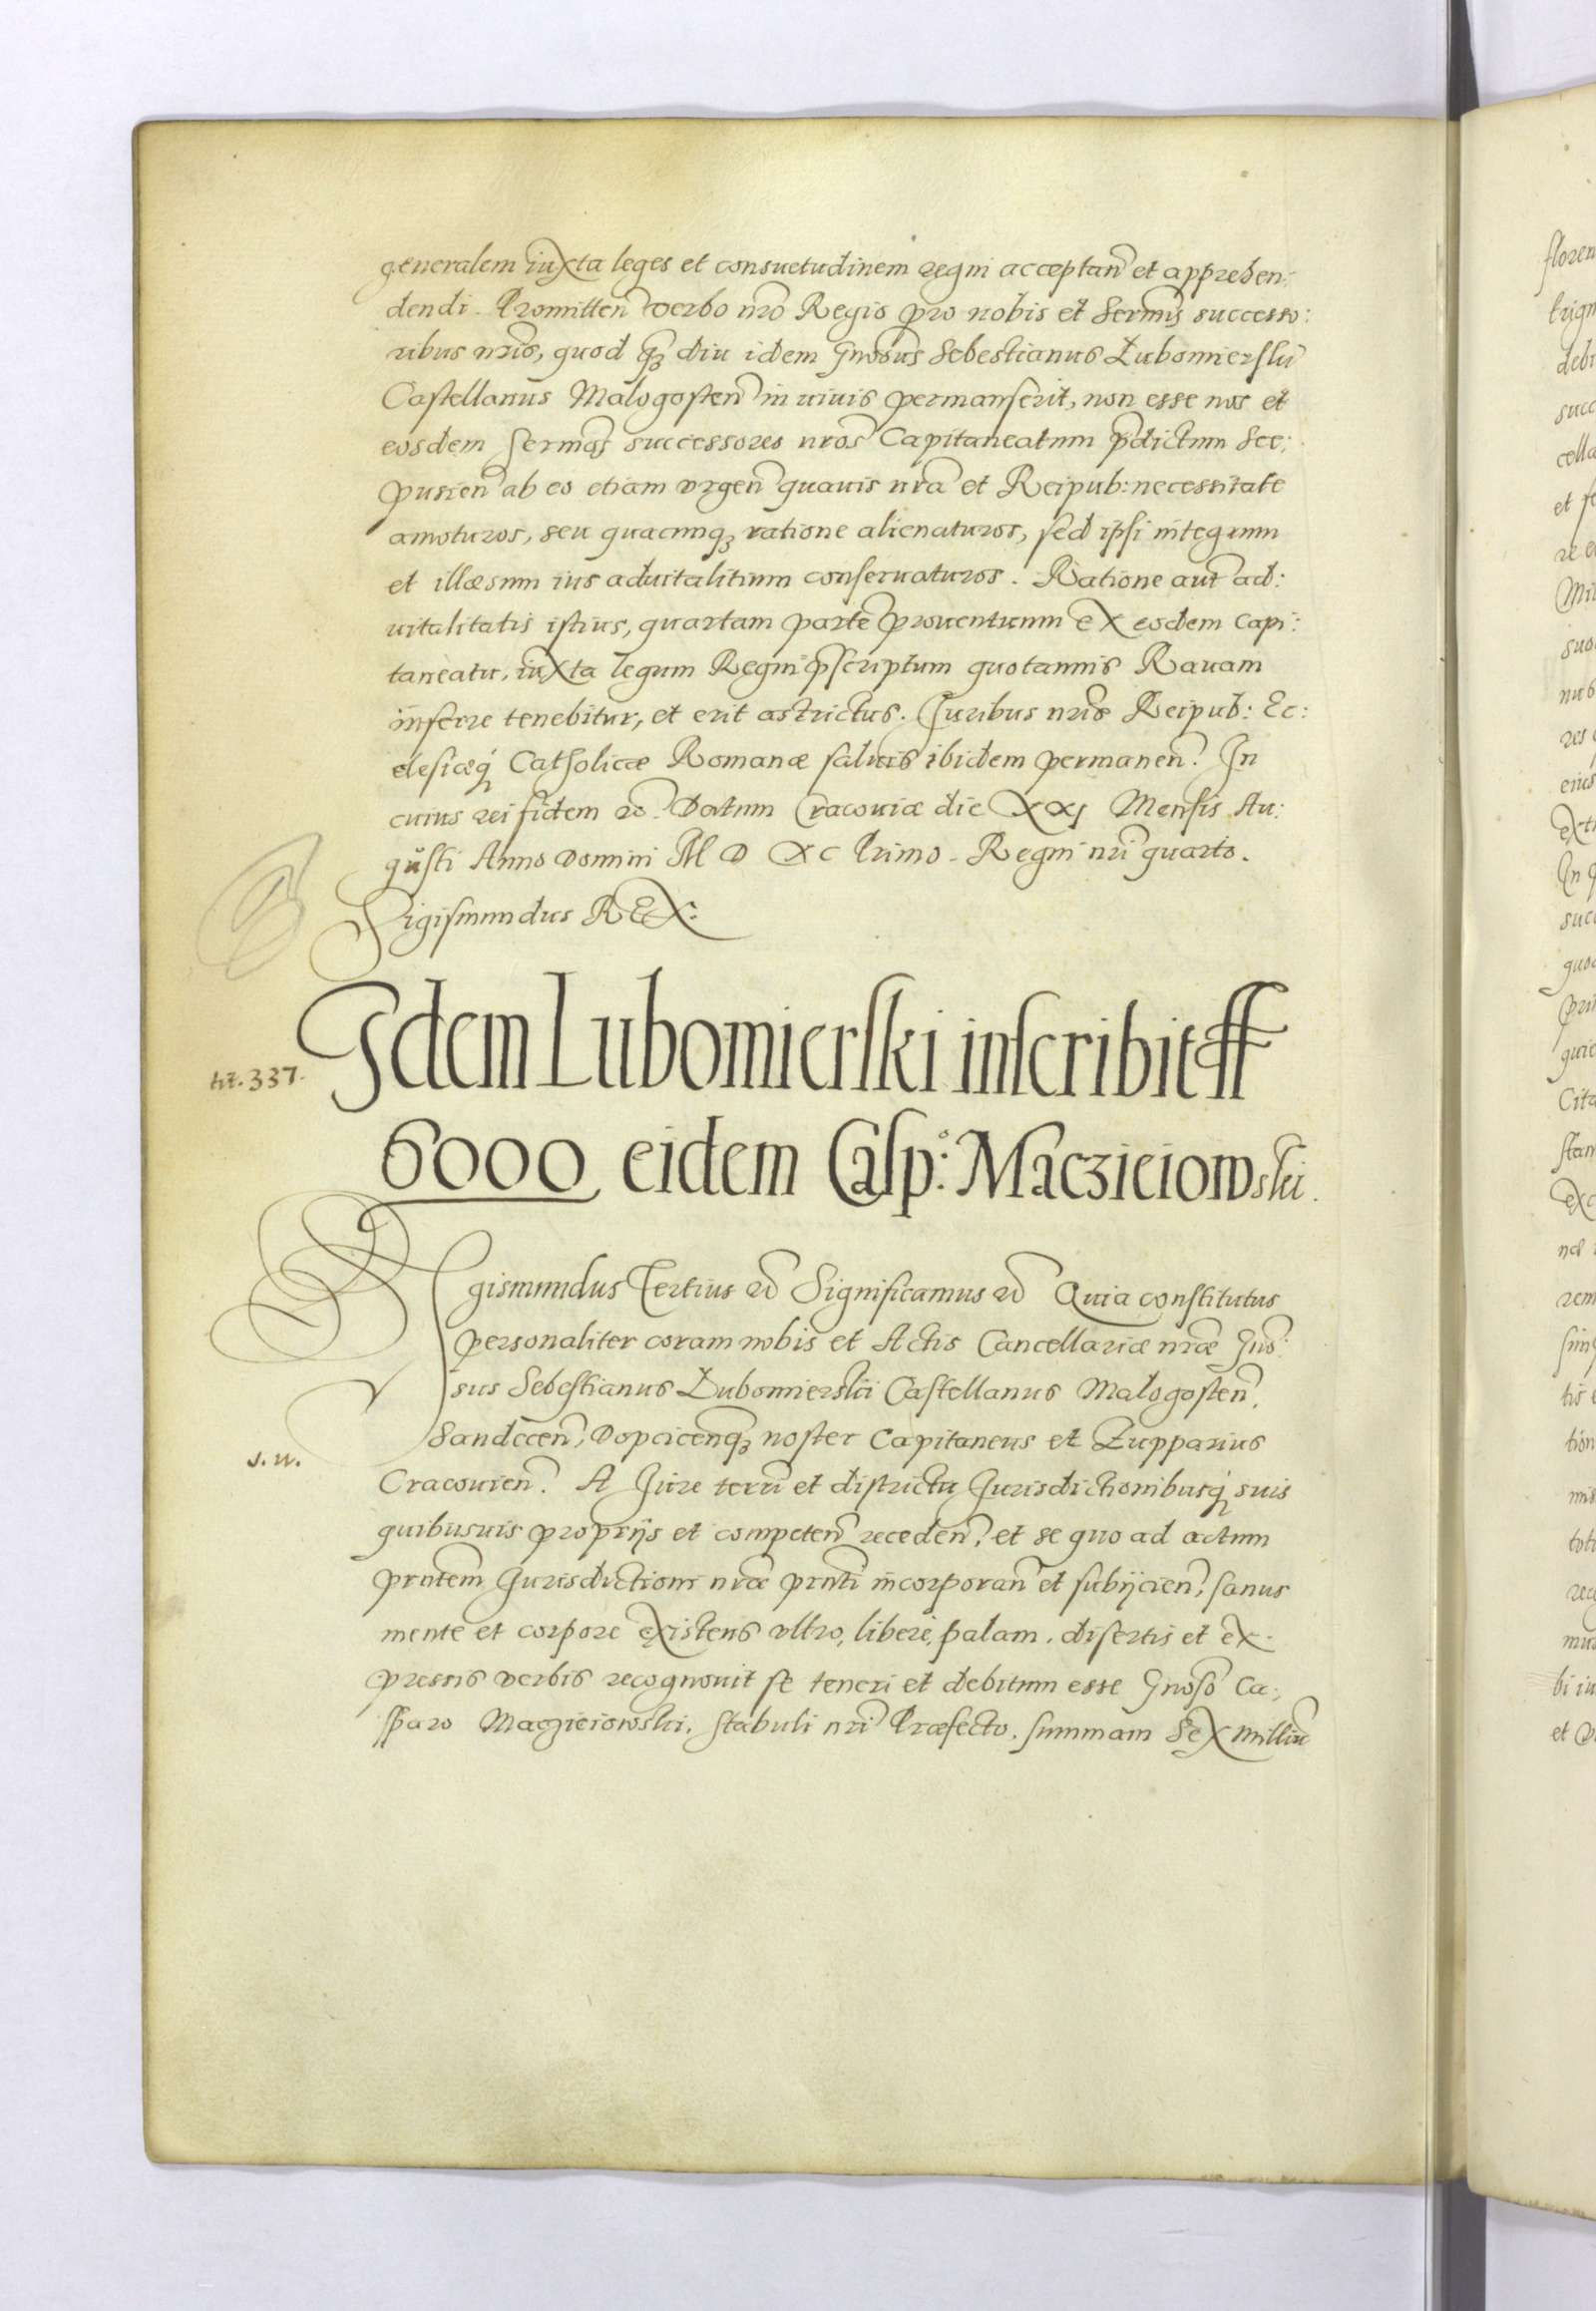 generalem iuxta leges et consuetudinem regni acceptan̄ et apprehen:
dendi. Promitten̄ verbo nr̄o Regio pro nobis et Serm̄is successo:
ribus nr̄is, quod qȝ diu idem Gn̄osus Sebestianus Lubomierski
Castellanus Malogosten̄ in viuis permanserit, non esse nos et
eosdem Serm̄os successores nr̄os Capitaneatum p̄dictum Sce:
pusien̄ ab eo etiam vrgen̄ quauis nr̄a et Reipub: necessitate
amoturos, seu quacunqȝ ratione alienaturos, sed ipsi integrum
et illæsum ius aduitalitium conseruaturos. Ratione aut̄ ad:
uitalitatis istius, quartam partē prouentuum ex eodem Capi:
taneatu, iuxta legum Regni p̄scriptum quotannis Rauam
inferre tenebitur, et erit astrictus. Juribus nr̄is Reipub: Ec:
clesiæq́ Catholicæ Romanæ saluis ibidem permanen̄. In
cuius rei fidem &c. Datum Cracouiæ die XXI Mensis Au:
gusti Anno Domini M D XC Primo. Regni nr̄i quarto.
Sigismundus REX:
Idem Lubomierski inscribit ff
tit. 337.
6000 eidem Casp: Maczieiowski.
Sigismundus Tertius &c Significamus &c Quia constitutus
personaliter coram nobis et Actis Cancellariæ nr̄æ Gn̄o:
sus Sebestianus Lubomierski Castellanus Malogosten̄.
Sandecen̄, Dopcicen̄qȝ noster Capitaneus et Zupparius
Cracouien̄. A Jure terr̄i et districtu Jurisdictionibusq́ suis
quibusuis proprijs et competen̄ receden̄, et se quo ad actum
pr̄ntem Jurisdictioni nr̄æ pr̄nti incorporan̄ et subijcien̄, sanus
mente et corpore existens vltro, libere, palam, disertis et ex
pressis verbis recognouit se teneri et debitum esse Gn̄oso Ca:
sparo Maczieiowski, Stabuli nr̄i Præfecto. summam Sex Milliū